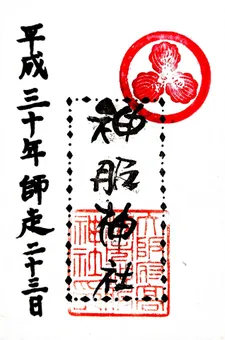 神服神社
平成三十年師走二十三日